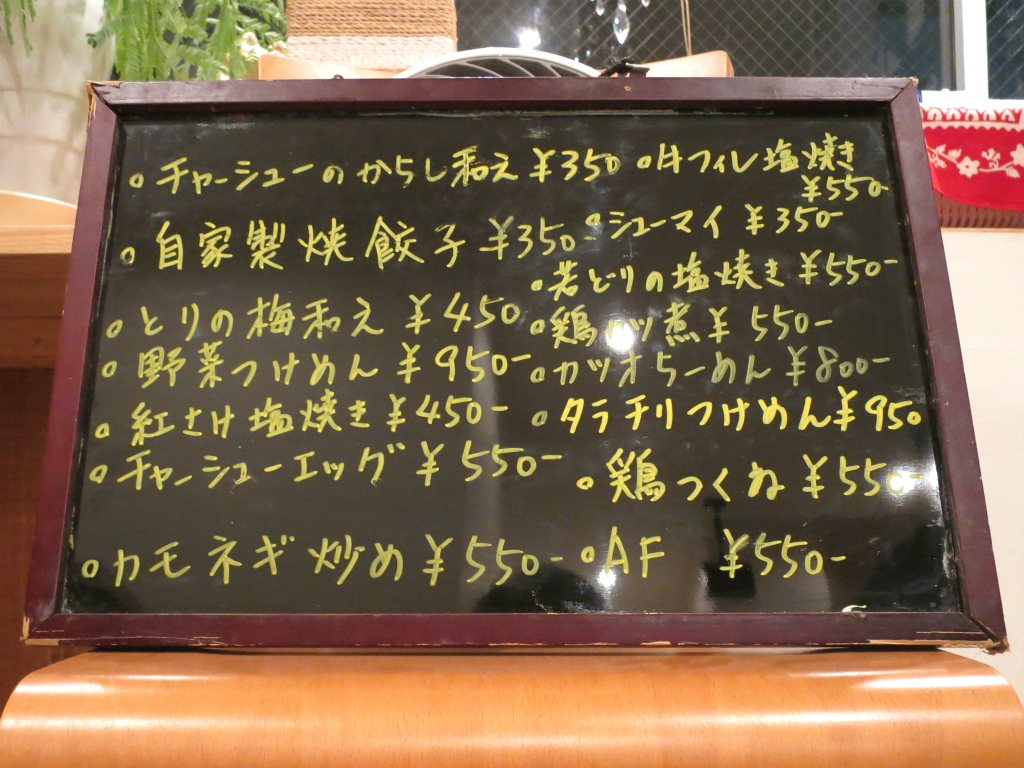 。チャーシューのからし和え ¥350
。自家製焼餃子 ¥350-
。とりの梅和え ¥450
。野菜つけめん ¥950-
。紅さけ塩焼き ¥450-
。チャーシューエッグ ¥550-
。カモネギ炒め ¥550-
。牛フィレ塩焼き
¥550-
。シューマイ ¥350-
。若どりの塩焼き ¥550-
。鶏 煮 ¥550-
。カツオらーめん ¥800-
。タラチリつけめん ¥950
。鶏つくね ¥550-
。AF ¥550-